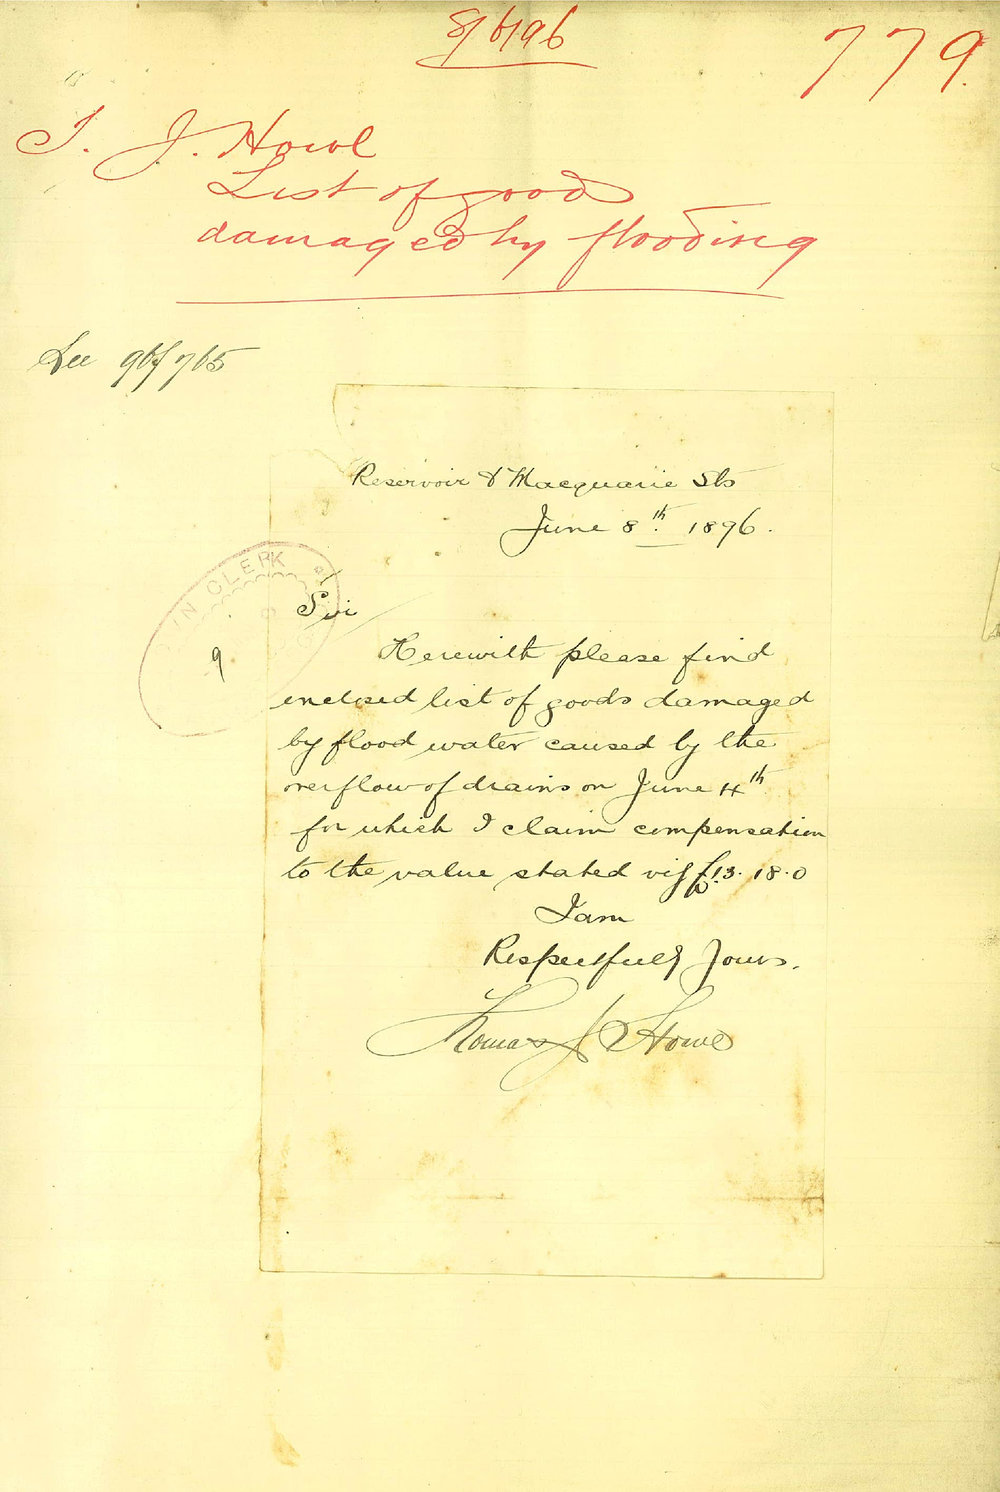 8/6/96
779.
T. J. Howe
List of goods
damaged by flooding
See 96/765
Reservoir & Macquarie Sts
June 8th 1896.
CLERK
9
Sir
Herewith please find
enclosed list of goods damaged
by flood water caused by the
overflow of drains on June 4th
for which I claim compensation
to the value stated viz £13. 18. 0
I am
Respectfully Yours.
Thomas J Howe